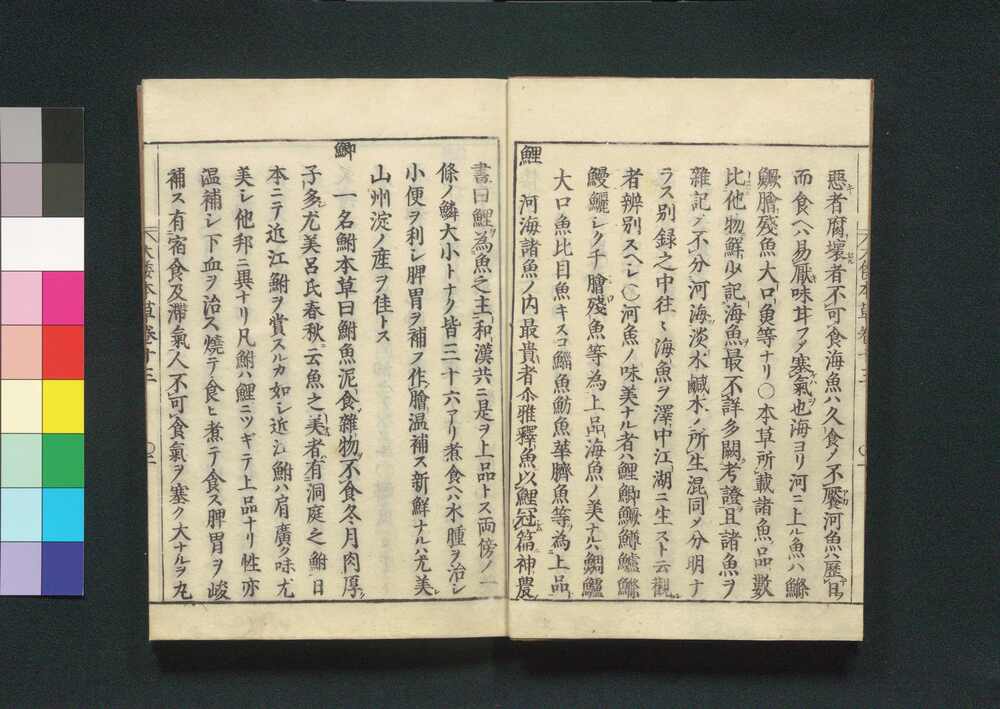 惡者腐壞者不可食海魚ハ久食ノ不饜河魚ハ歷日
而食ヘハ易厭味甘フメ塞氣也海ヨリ河ニ上ル魚ハ鰷
鱖膾殘魚大口魚等ナリ〇本草所載諸魚品數
比他物鮮少記海魚最不詳多闕考證且諸魚ヲ
雜記ノ不分河海淡水鹹水ノ所生混同ノ分明ナ
ラス別録之中往〻海魚ヲ澤中江湖ニ生スト云觀
者辨別スヘシ〇河魚ノ味美ナル者ハ鯉鯽鱖鱒鱸鰷
鰻鱺シクチ膾殘魚等為上品海魚ノ美ナルハ鯛鱸
大口魚比目魚キスコ鯔魚魴魚華臍魚等為上品
鯉
河海諸魚ノ内最貴者尒雅釋魚以鯉冠篇神農
書曰鯉為魚之主和漢共ニ是ヲ上品トス両傍ノ一
條ノ鱗大小トナク皆三十六アリ煮食ヘハ水腫ヲ治シ
小便ヲ利シ脾胃ヲ補フ作膾温補ス新鮮ナルハ尤美
山州淀ノ産ヲ佳トス
鯽
一名鮒本草曰鮒魚泥食雜物不食冬月肉厚
子多尤美呂氏春秋云魚之美者有洞庭之鮒日
本ニテ近江鮒ヲ賞スルカ如シ近江鮒ハ肩廣ク味尤
美シ他邦ニ異ナリ凡鮒ハ鯉ニツギテ上品ナリ性亦
温補シ下血ヲ治ス燒テ食ヒ煮テ食ス脾胃ヲ峻
補ス有宿食及滯氣人不可食氣ヲ塞ク大ナルヲ丸
大倭本草卷十三